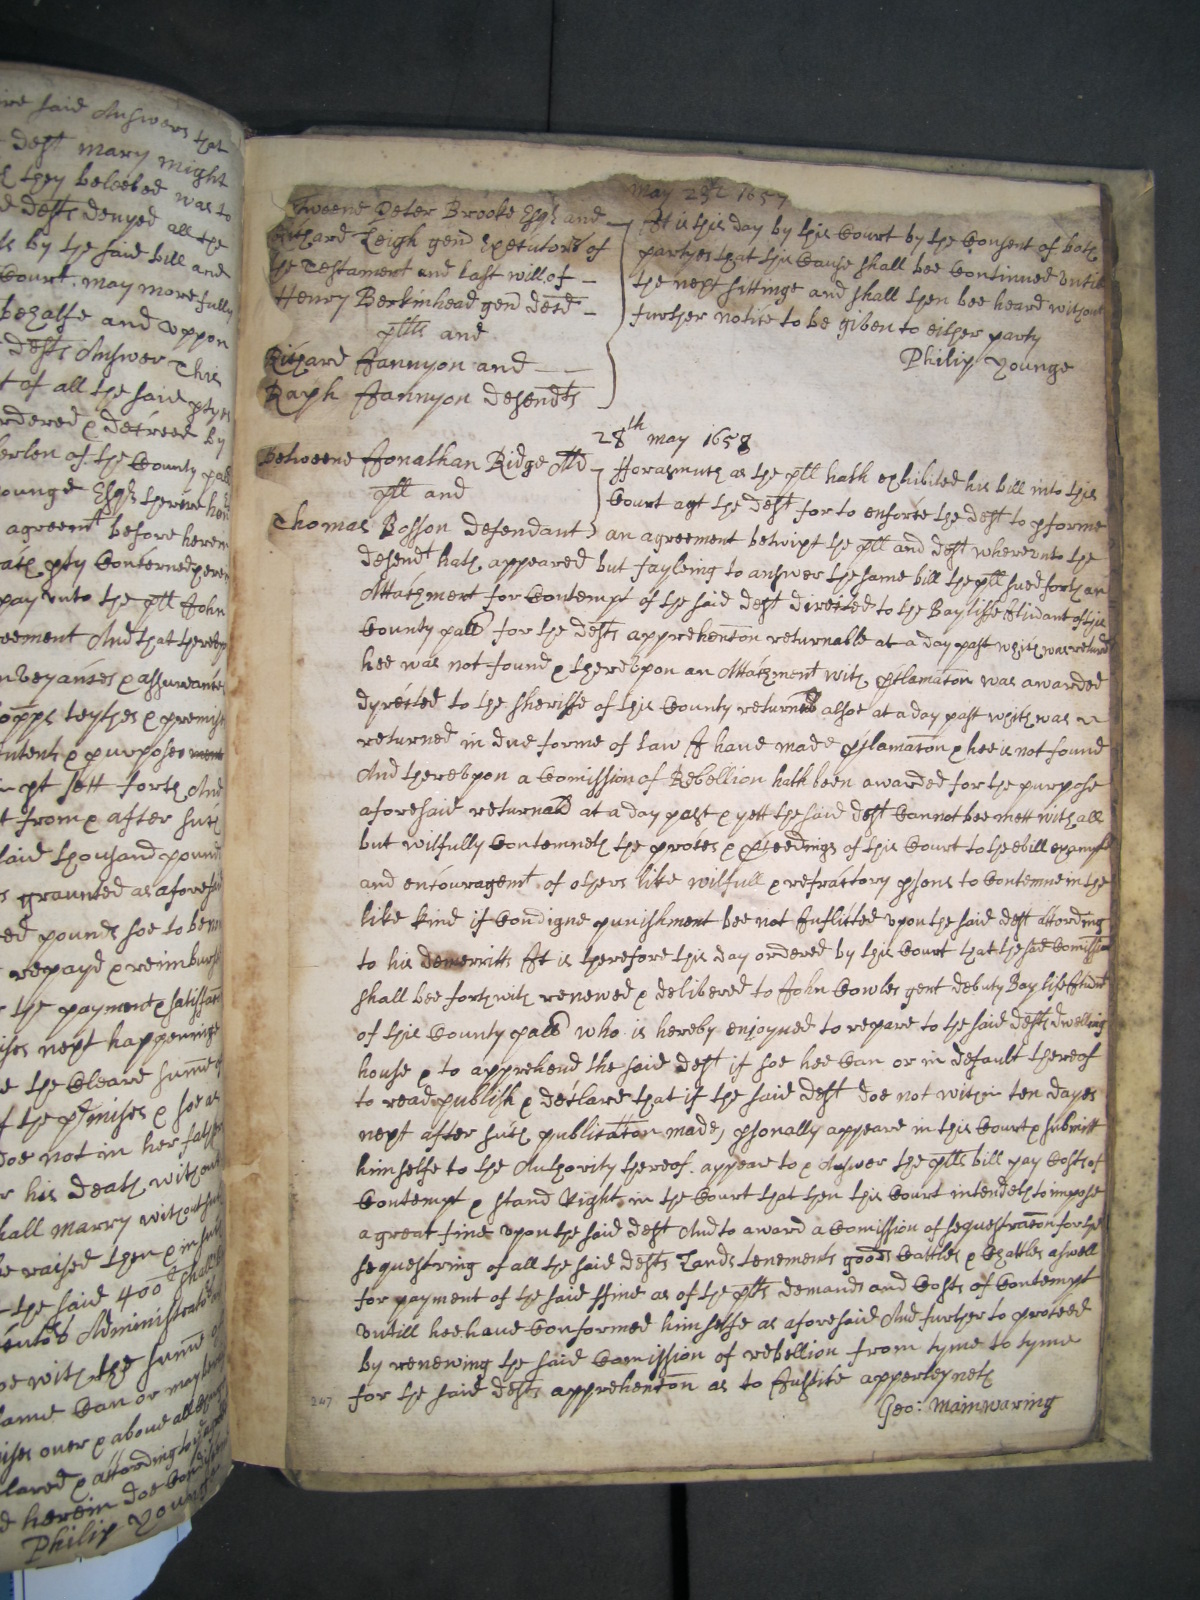 ire said Answers that
deft mary might
they beleeved was to
defts denyed all the
by the said bill and
Court may more fully
behalfe and uppon
defts Answer This
t of all the said ptyes
rdered & decreed By
of the County pall
ounge Esqr
agreemt before herein
pty Concerned
pay unto the plt John
eement And that thereby
nveyances & assurances
teythes & premis
intents & purposes
in pt sett forth And
t from & after such
said thousand pound
s graunted as aforesaid
ed pounds soe to be
repayd & reimburst
the payment & satisfac
next happeninge
the cleare summe of
f the pmises & soe as
doe not in her father
r his death without
hall marry without
be raised then & in such
the said 400
Administrato
oe with the summ of
same can or may bee
ises over & above all
lared & according to
d herein doe
Philip Younge
May 23th 1657
Tweene Peter Brooke Esqr and
Richard Leigh gen Executors of
the Testament and last will of
Henry Berkinhead gen decd
plts and
Richard Jannyon and
Raph Jannyon defendts
It is this day by this Court by the Consent of both
partyes that this Cause shall bee Continued untill
the next sittinge and shall then bee heard without
further notice to be given to either party
Philip Younge
28th may 1658
Betweene Jonathan Ridge
plt and
Thomas Bosson defendant
Forasmuch as the plt hath exhibited his bill into this
Court agt the deft for to enforce the deft to pforme
an agreement betwixt the plt and deft whereunto the
defendt hath appeared but fayleing to answer the same bill the plt sued forth an
Attachment for Contempt of the said deft directed to the Bayliffe Itinant of this
County pall for the defts apprehencon returnable at a day past which was returnd
hee was not found & therevpon an Attachmt with pclamacon was awarded
dyrected to the Sheriffe of this County returnab alsoe at a day past which was
returned in due forme of law I have made pclamacon & hee is not found
And therevpon a Comission of Rebellion hath been awarded for the purpose
aforesaid returnab at a day past & yett the said deft Cannot bee mett withall
but wilfully Contemneth the proces & pceedings of this Court to the evill exampl
and encouragemt of others like wilfull & refractory psons to Contemne in the
like kind if Condigne punishment bee not Inflicted vpon the said deft according
to his demerritts It is therefore this day ordered by this Court that the said Comission
shall bee forthwith renewed & delivered to John Cowles gent debuty Baylife Itinant
of this County pall who is hereby enjoyned to repare to the said defts dwelling
house & to apprehend the said deft if soe hee Can or in default thereof
to read publish & declare that if the said deft doe not within ten dayes
next after such publicacon made, psonally appeare in this Court & submitt
himselfe to the Authority thereof. appear to & Answer the plts bill pay Costs of
Contempt & stand Right in the Court that then this Court intendeth to impose
a great fine vpon the said deft And to award a Comission of sequestracon for the
sequestring of all the said defts Lands tenements goods Cattles & Chattles aswell
for payment of the said ffine as of the plts demands and Costs of Contempt
Vntill hee have Conformed himselfe as aforesaid And further to proceed
by renewing the said Comission of rebellion from tyme to tyme
for the said defts apprehencon as to Justice apperteyneth
247
Geo: Mainwaring